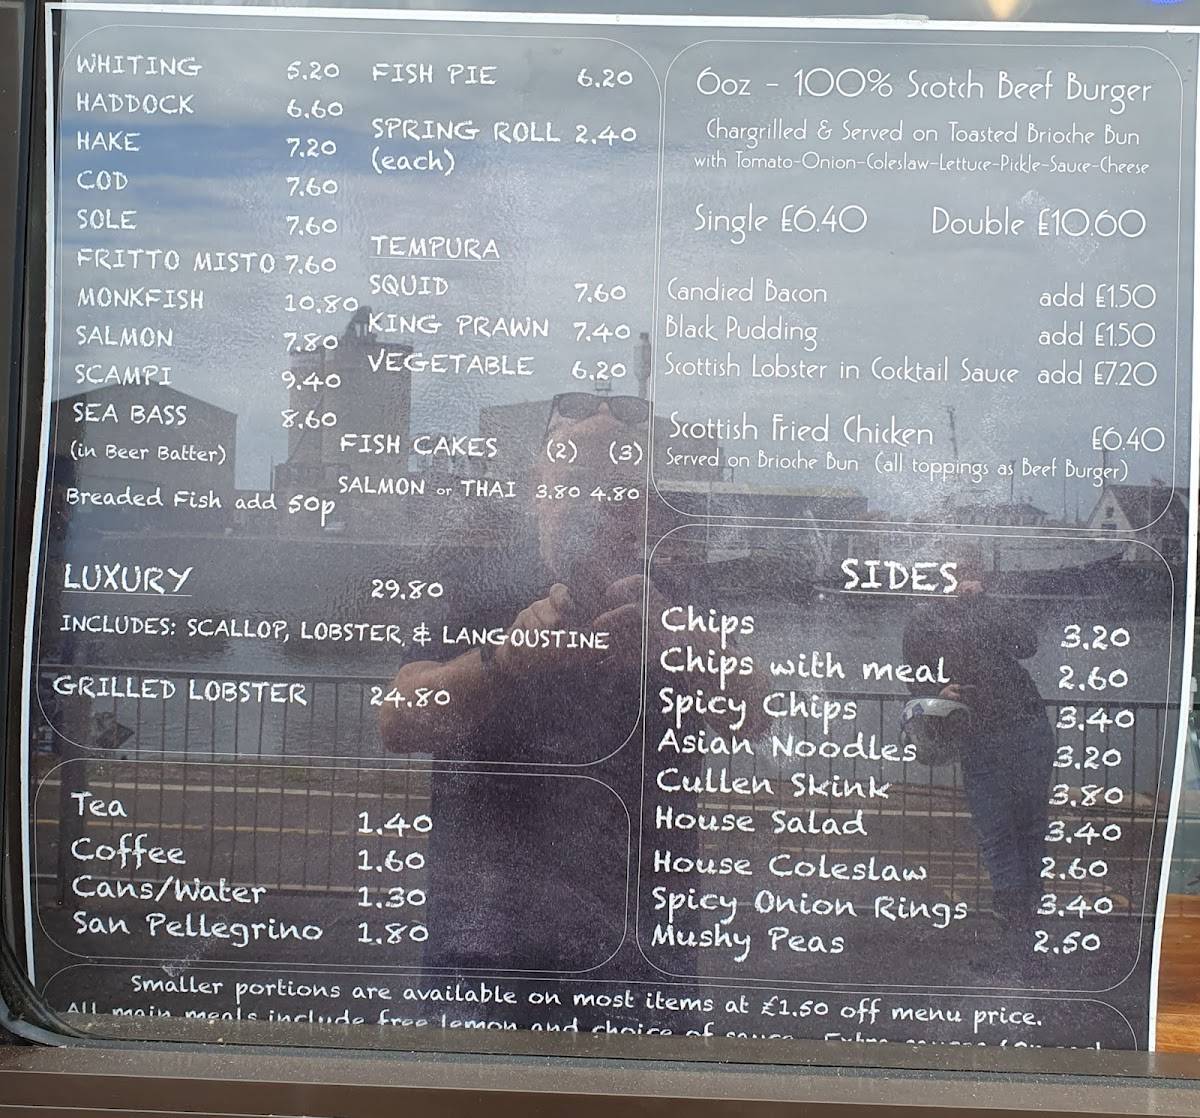 WHITING 5.20
HADDOCK 6.60
HAKE 7.20
COD 7.60
SOLE 7.60
FRITTO MISTO 7.60
MONKFISH 10.80
SALMON 7.80
SCAMPI 9.40
SEA BASS 8.60
(in Beer Batter)
Breaded Fish add 50p
FISH PIE 6.20
SPRING ROLL 2.40
(each)
TEMPURA
SQUID 7.60
KING PRAWN 7.40
VEGETABLE 6.20
FISH CAKES (2) (3)
SALMON or THAI 3.80 4.80
LUXURY 29.80
INCLUDES: SCALLOP, LOBSTER, & LANGOUSTINE
GRILLED LOBSTER 24.80
Tea 1.40
Coffee 1.60
Cans/Water 1.30
San Pellegrino 1.80
6oz - 100% Scotch Beef Burger
Chargrilled & Served on Toasted Brioche Bun
with Tomato-Onion-Coleslaw-Lettuce-Pickle-Sauce-Cheese
Single £6.40 Double £10.60
Candied Bacon add £1.50
Black Pudding add £1.50
Scottish Lobster in Cocktail Sauce add £7.20
Scottish Fried Chicken £6.40
Served on Brioche Bun (all toppings as Beef Burger)
SIDES
Chips 3.20
Chips with meal 2.60
Spicy Chips 3.40
Asian Noodles 3.20
Cullen Skink 3.80
House Salad 3.40
House Coleslaw 2.60
Spicy Onion Rings 3.40
Mushy Peas 2.50
Smaller portions are available on most items at £1.50 off menu price.
All main meals include free lemon and choice of sauce. Extra